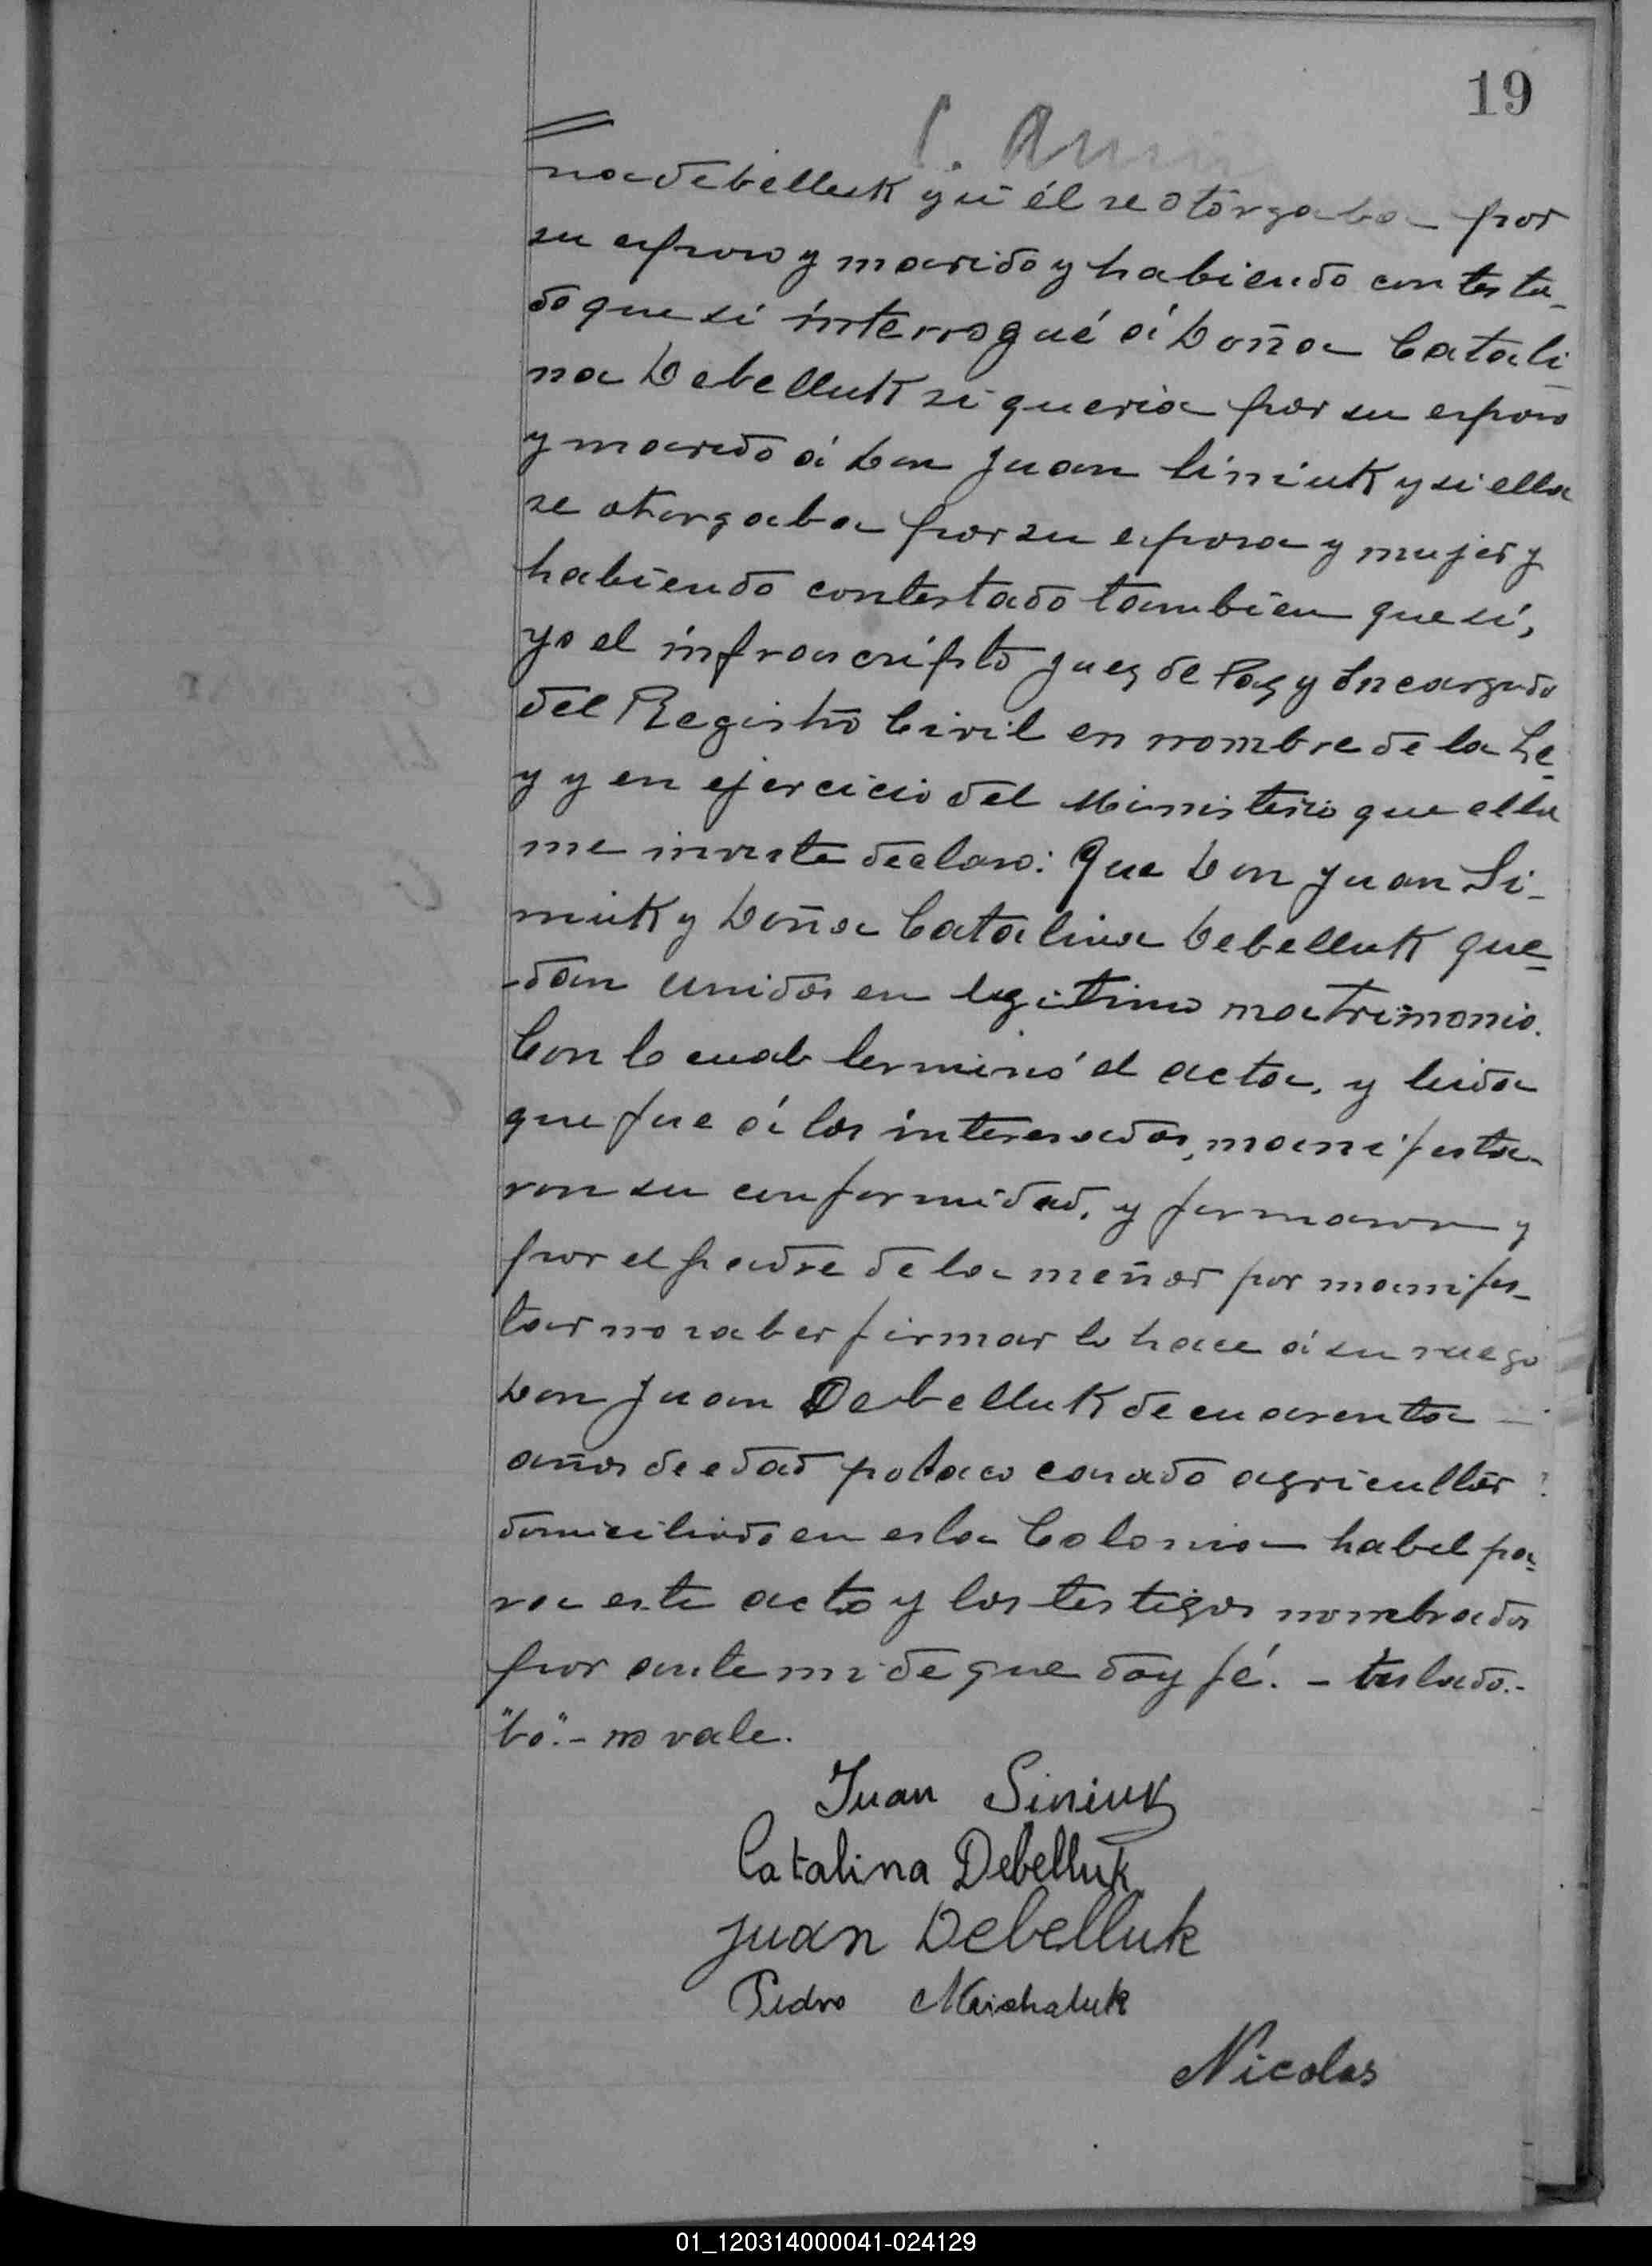 19
na Debelluk y si él se otorgaba por
su esposo y marido y habiendo contesta-
do que sí interrogué á Doña Catali-
na Debelluk si queria por su esposo
y marido á Don Juan Siniuk y si ella
se otorgaba por su esposa y mujer y
habiendo contestado tambien que sí,
yo el infrascripto Juez de Paz y Encargado
del Registro Civil en nombre de la Le-
y y en ejercicio del Ministerio que ella
me inviste declaro: Que Don Juan Si-
niuk y Doña Catalina Debelluk que-
-dan unidos en legitimo matrimonio.
Con lo cual terminó el acta, y leida
que fue á los interesados, manifesta-
ron su conformidad, y firmaron y
por el padre de la menor por manifes-
tar no saber firmar lo hace á su ruego
Don Juan Debelluk de cuarenta
años de edad polaco casado agricultor
domiciliado en esta Colonia habil pa-
ra este acto y los testigos nombrados
por ante mi de que doy fé. - tes lado.-
"to".- no vale.
Juan Siniuk
Catalina Debelluk
Juan Debelluk
Pedro Maichaluk
Nicolas
01_120314000041-024129